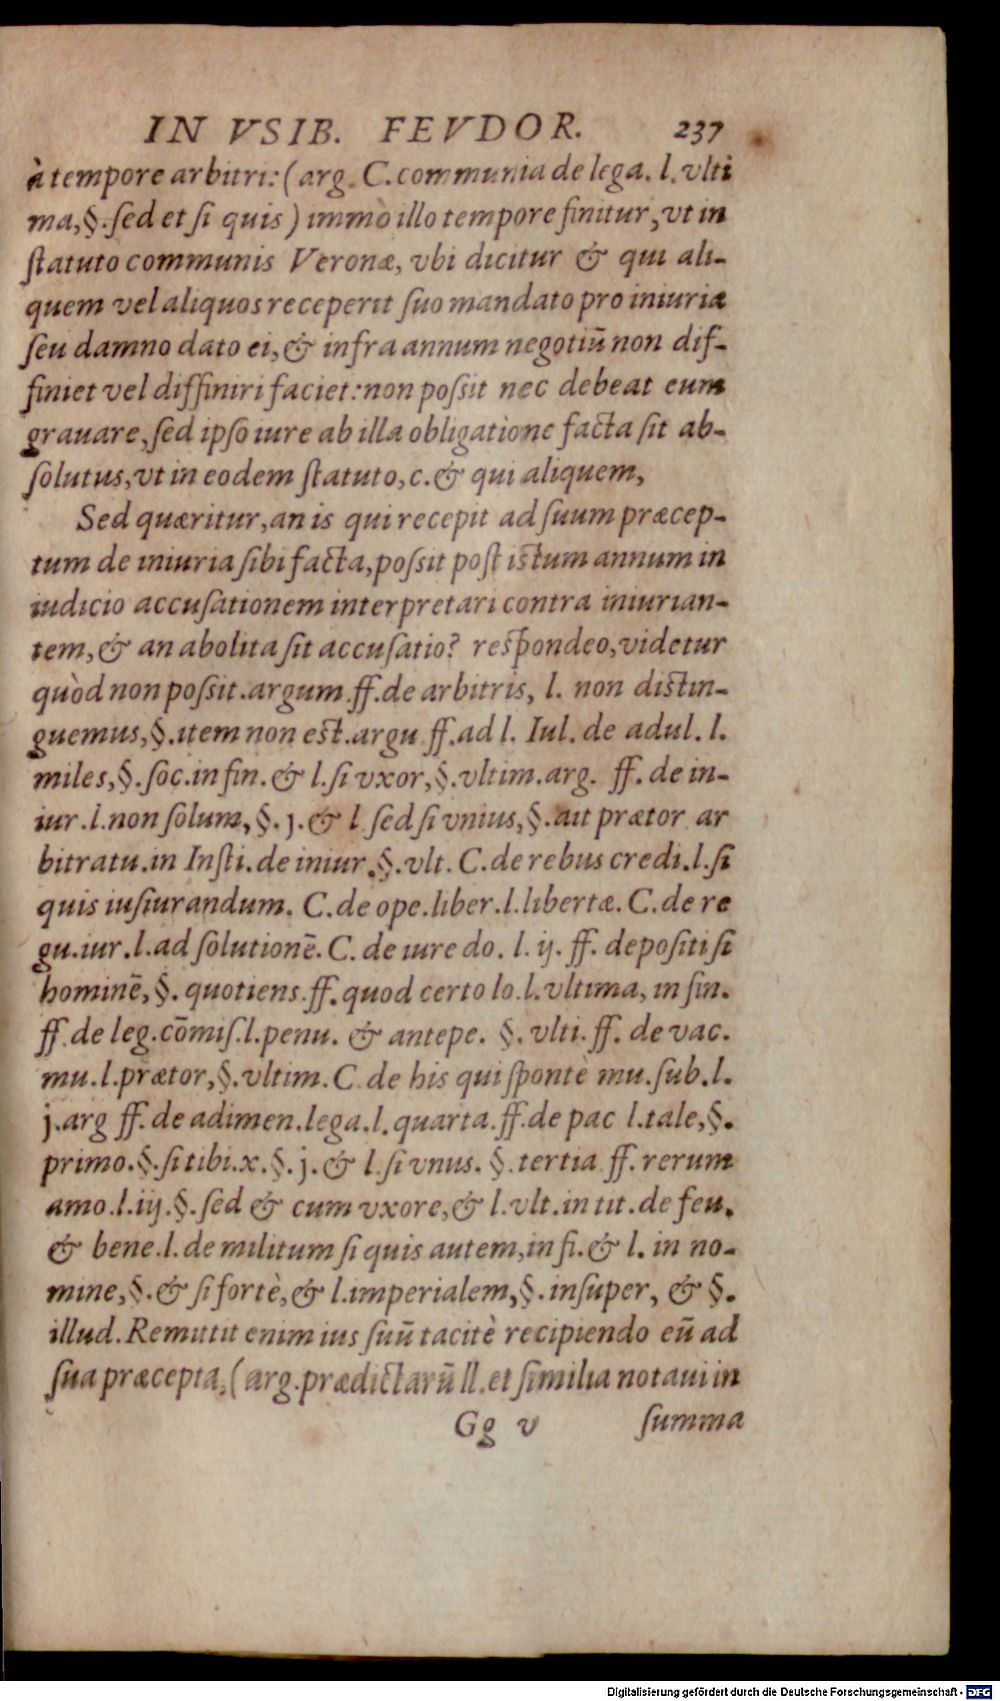 IN VSIB. FEVDOR. 237
à tempore arbitri: (arg. C. communia de lega. l. vlti
ma, §. sed et si quis) immò illo tempore finitur, vt in
statuto communis Veronæ, vbi dicitur & qui ali-
quem vel aliquos receperit suo mandato pro iniuriæ
seu damno dato ei, & infra annum negotiũ non dif-
finiet vel diffiniri faciet: non possit nec debeat eum
grauare, sed ipso iure ab illa obligatione facta sit ab-
solutus, vt in eodem statuto, c. & qui aliquem,
Sed quæritur, an is qui recepit ad suum præcep-
tum de iniuria sibi facta, possit post istum annum in
iudicio accusationem interpretari contra iniurian-
tem, & an abolita sit accusatio? respondeo, videtur
quòd non possit. argum. ff. de arbitris, l. non distin-
guemus, §. item non est. argu ff. ad l. Iul. de adul. l.
miles, §. soc. in fin. & l. si vxor, §. vltim. arg. ff. de in-
iur. l. non solum, §. j. & l sed si vnius, §. ait prætor ar
bitratu. in Insti. de iniur. §. vlt. C. de rebus credi. l. si
quis iusiurandum. C. de ope. liber. l. libertæ. C. de re
gu. iur. l. ad solutionẽ. C. de iure do. l. ij. ff. depositi si
hominẽ, §. quotiens. ff. quod certo lo. l. vltima, in fin.
ff. de leg. cõmis. l. penu. & antepe. §. vlti. ff. de vac.
mu. l. prætor, §. vltim. C. de his qui spontè mu. sub. l.
j. arg ff. de adimen. lega. l. quarta. ff. de pac l. tale, §.
primo. §. si tibi. x. §. j. & l. si vnus. §. tertia ff. rerum
amo. l. iij. §. sed & cum vxore, & l. vlt. in tit. de feu.
& bene. l. de militum si quis autem, in fi. & l. in no-
mine, §. & si fortè, & l. imperialem, §. insuper, & §.
illud. Remittit enim ius suũ tacitè recipiendo eũ ad
sua præcepta, (arg. prædictarũ ll. et similia notaui in
Gg v summa
Digitalisierung gefördert durch die Deutsche Forschungsgemeinschaft - DFG